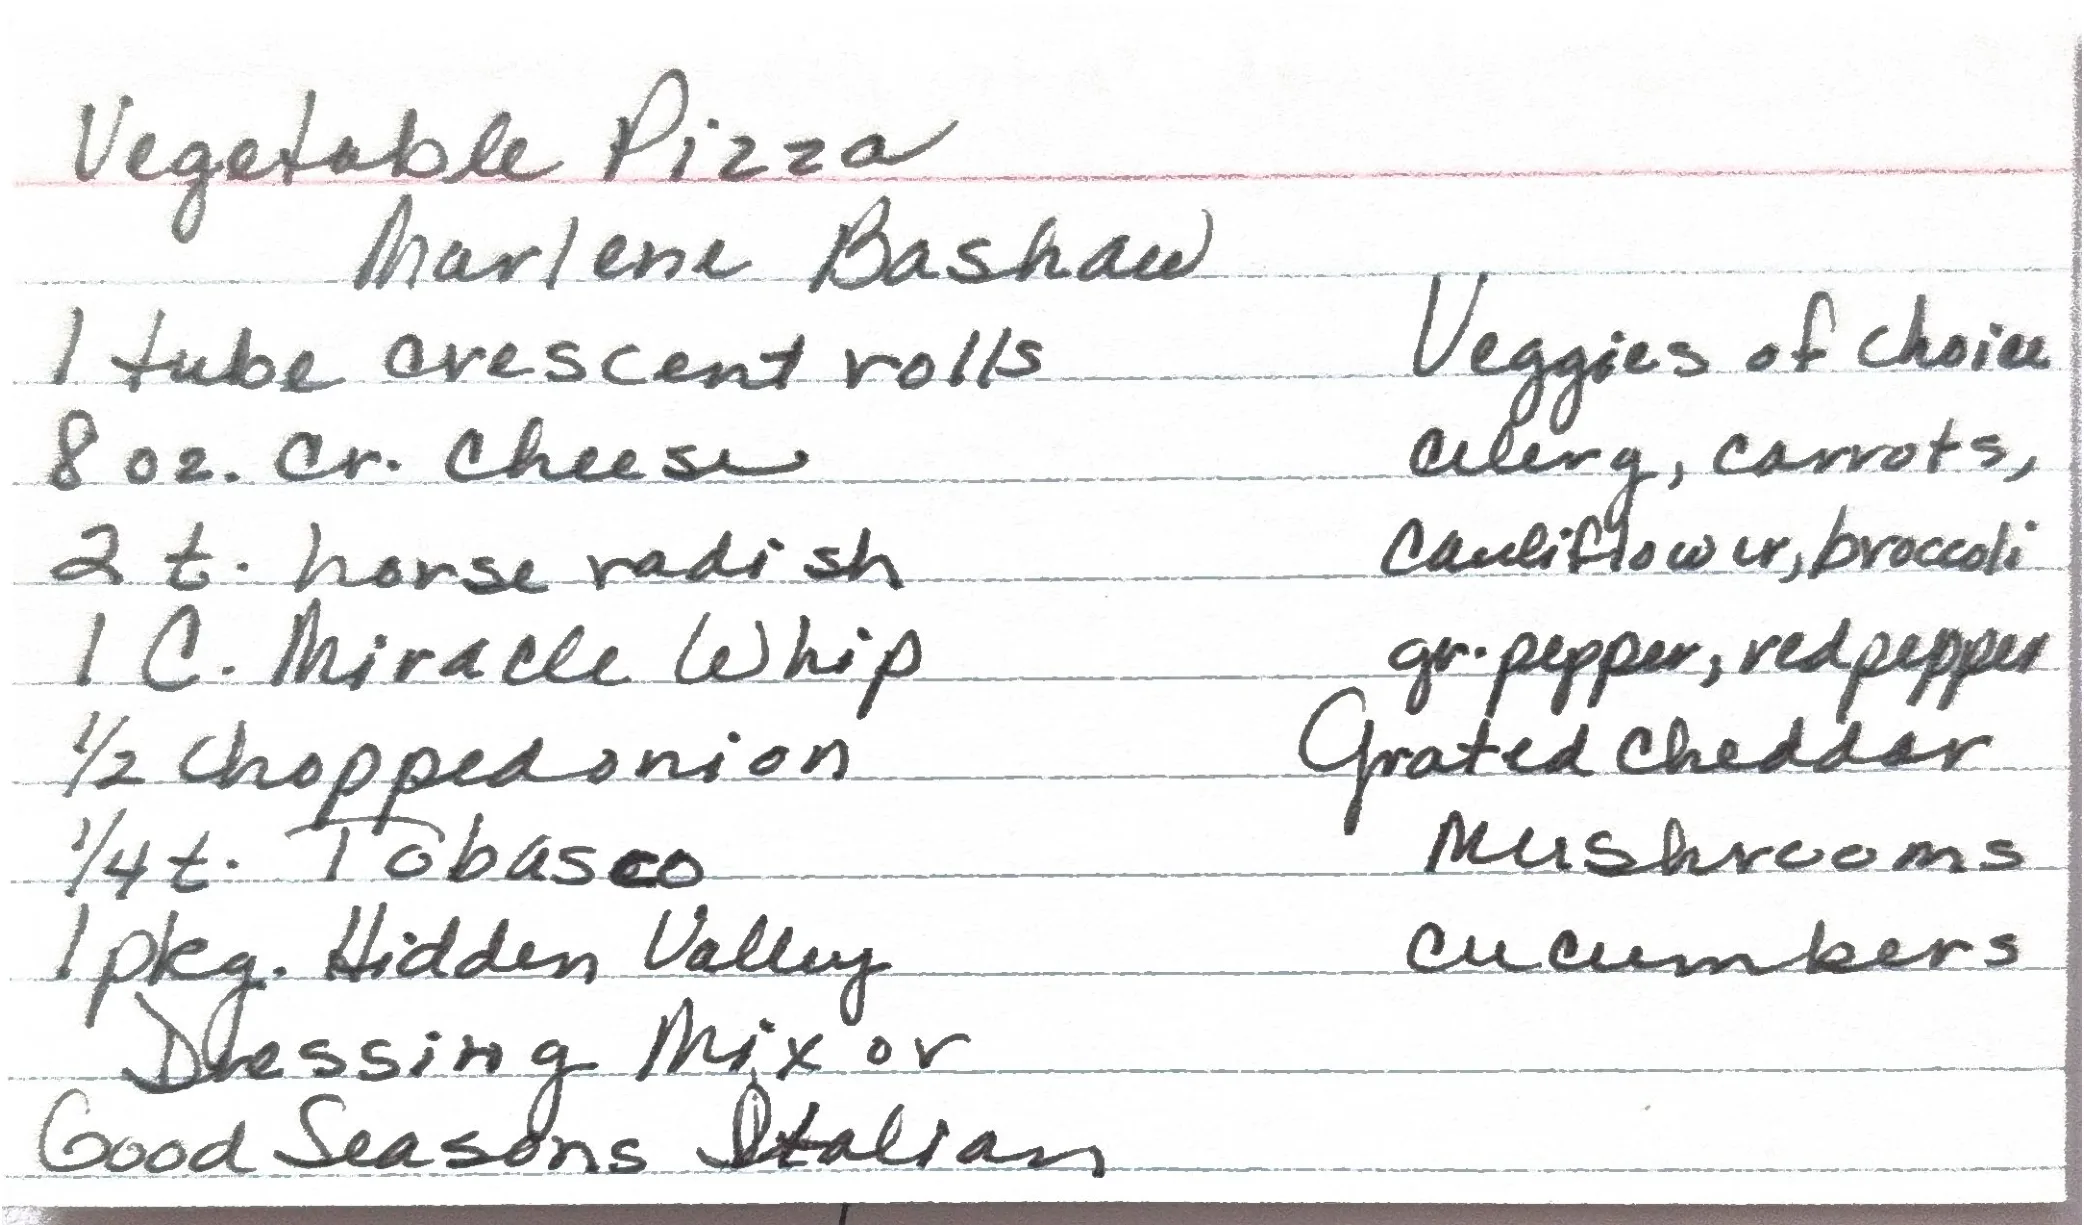 Vegetable Pizza
Marlene Bashaw
1 tube crescent rolls
8 oz. cr. cheese
2 t. horse radish
1 C. Miracle Whip
1/2 chopped onion
1/4 t. Tobasco
1 pkg. Hidden Valley
Dressing Mix or
Good Seasons Italian
Veggies of choice
celery, carrots,
cauliflower, broccoli
gr. pepper, red pepper
Grated cheddar
Mushrooms
cucumbers